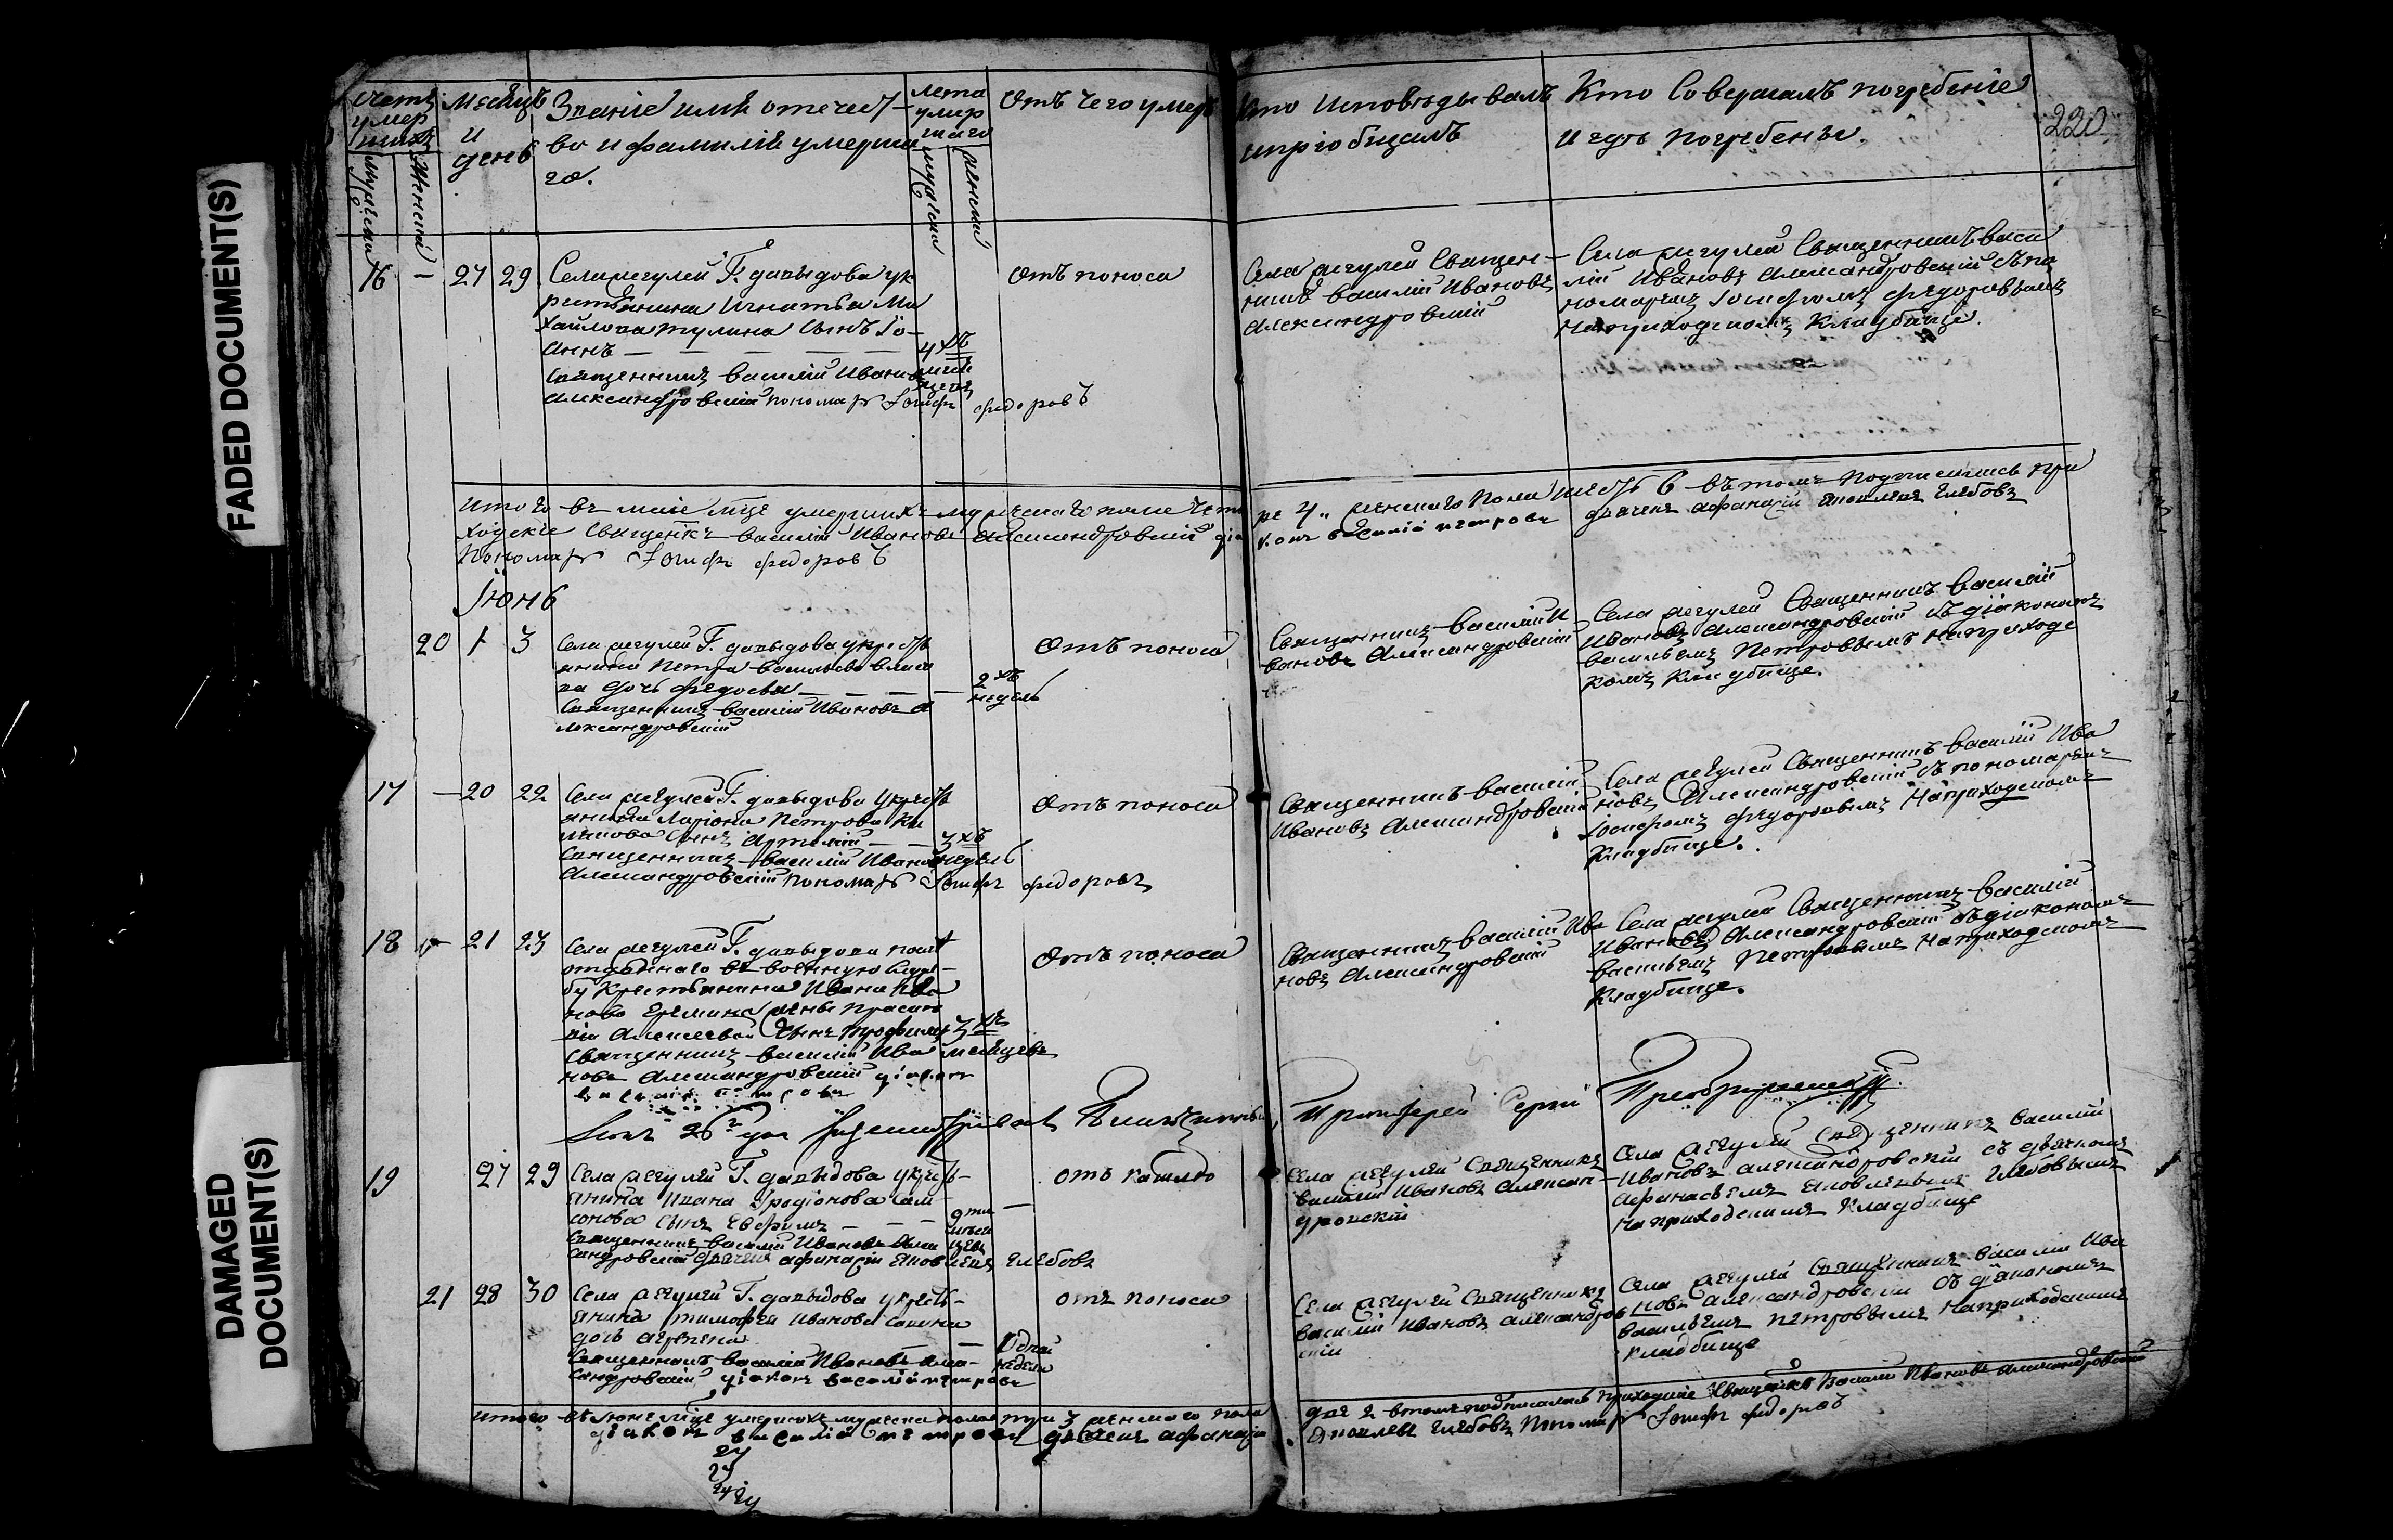 FADED DOCUMENT(S)
DAMAGED
DOCUMENT(S)
счетъ
умер
шихъ
Мужески
Женска
Месяцъ
и
день
Званіе имя отечест-
во и фамилія умерша
го.
лета
умер
шаго
мужески
женски
Отъ чего умеръ
Кто Исповѣдывалъ
и пріобщалъ
Кто Совершалъ погребеніе
и гдѣ погребены.
220
16 – 27 29
Села Г. давыдова ук
рестьянина Игнатья Ми
хайлова сынъ Іо-
аннъ
4хъ
Священникъ василій Иванов
Александровскій пономарь Іосифъ федоровъ
Отъ поноса
Села Священ-
никъ василій Ивановъ
Александровскій
Села Священникъ васи
лій Ивановъ Александровскій съ по
номаремъ Іосифомъ федоровымъ
на приходскомъ кладбище.
Итого въ маіе мце умершихъ мужескаго пола четы
ре 4,, женскаго пола шесть 6 въ томъ подписались при
ходскіе Священкъ василій Ивановъ Александровскій діа
конъ василій петровъ дьячекъ афанасій яковлевъ глебовъ
Пономарь Іосифъ федоровъ
Іюнь
20 1 3
Села Г. давыдова укресть
янина Петра васильева
ва дочь федосья
2хъ
недель
Священникъ василій Ивановъ А
лександровскій
Отъ поноса
Священникъ василій И
вановъ Александровскій
Села Священникъ василій
Ивановъ Александровскій съ діакономъ
васильемъ Петровымъ на приходс
комъ кладбище.
17 – 20 22
Села Г. давыдова укресть
янина Петрова
сынъ
3хъ
недель
Священникъ василій Иванов
Александровскій пономарь Іосифъ федоровъ
Отъ поноса
Священникъ василій
Ивановъ Александровскій
Села Священникъ василій Ива
новъ Александровскій съ пономаремъ
Іосифомъ федоровымъ на приходскомъ
кладбище.
18 21 23
Села Г. давыдова
отданнаго въ военную служ-
бу крестьянина Ивана Ива
нова Еремина жены Праско
віи Алексеевой сынъ трофимъ
3хъ
месяцевъ
Священникъ василій Ива
новъ Александровскій діаконъ
василій петровъ
Отъ поноса
Священникъ василій Ива
новъ Александровскій
Села Священникъ василій
Ивановъ Александровскій съ діакономъ
васильемъ Петровымъ на приходскомъ
кладбище.
Іюня 26 дня
Протоіерей Сергій Преображенскій.
19 27 29
Села Г. давыдова укресть-
янина Ивана родіонова сам-
сонова сынъ Ефимъ
9ти
Священникъ василій Ивановъ Алек
сандровскій дьячекъ афанасій яковлевъ глебовъ
отъ кашлю
Села Священникъ
василій Ивановъ Алексан-
дровскій
Села Священникъ василій
Ивановъ александровскій съ дьячкомъ
афанасьемъ яковлевымъ глебовымъ
на приходскимъ кладбище
21 28 30
Села Г. давыдова укресть-
янина тимофея Иванова
дочь агрепена
1 одной
недели
Священникъ василій Ивановъ Алек-
сандровскій діаконъ василій петровъ
отъ поноса
Села Священникъ
василій Ивановъ александров
скій
Села Священникъ василій Ива
новъ александровскій съ діакономъ
васильемъ петровымъ на приходскимъ
кладбище
Итого въ іюне мце умершихъ мужеска пола три 3 женскаго пола
две 2 в томъ подписались приходскіе Священникъ василій Ивановъ Александровскій
діаконъ василій петровъ дьячекъ афанасій
яковлевъ глебовъ Пономарь Іосифъ федоровъ